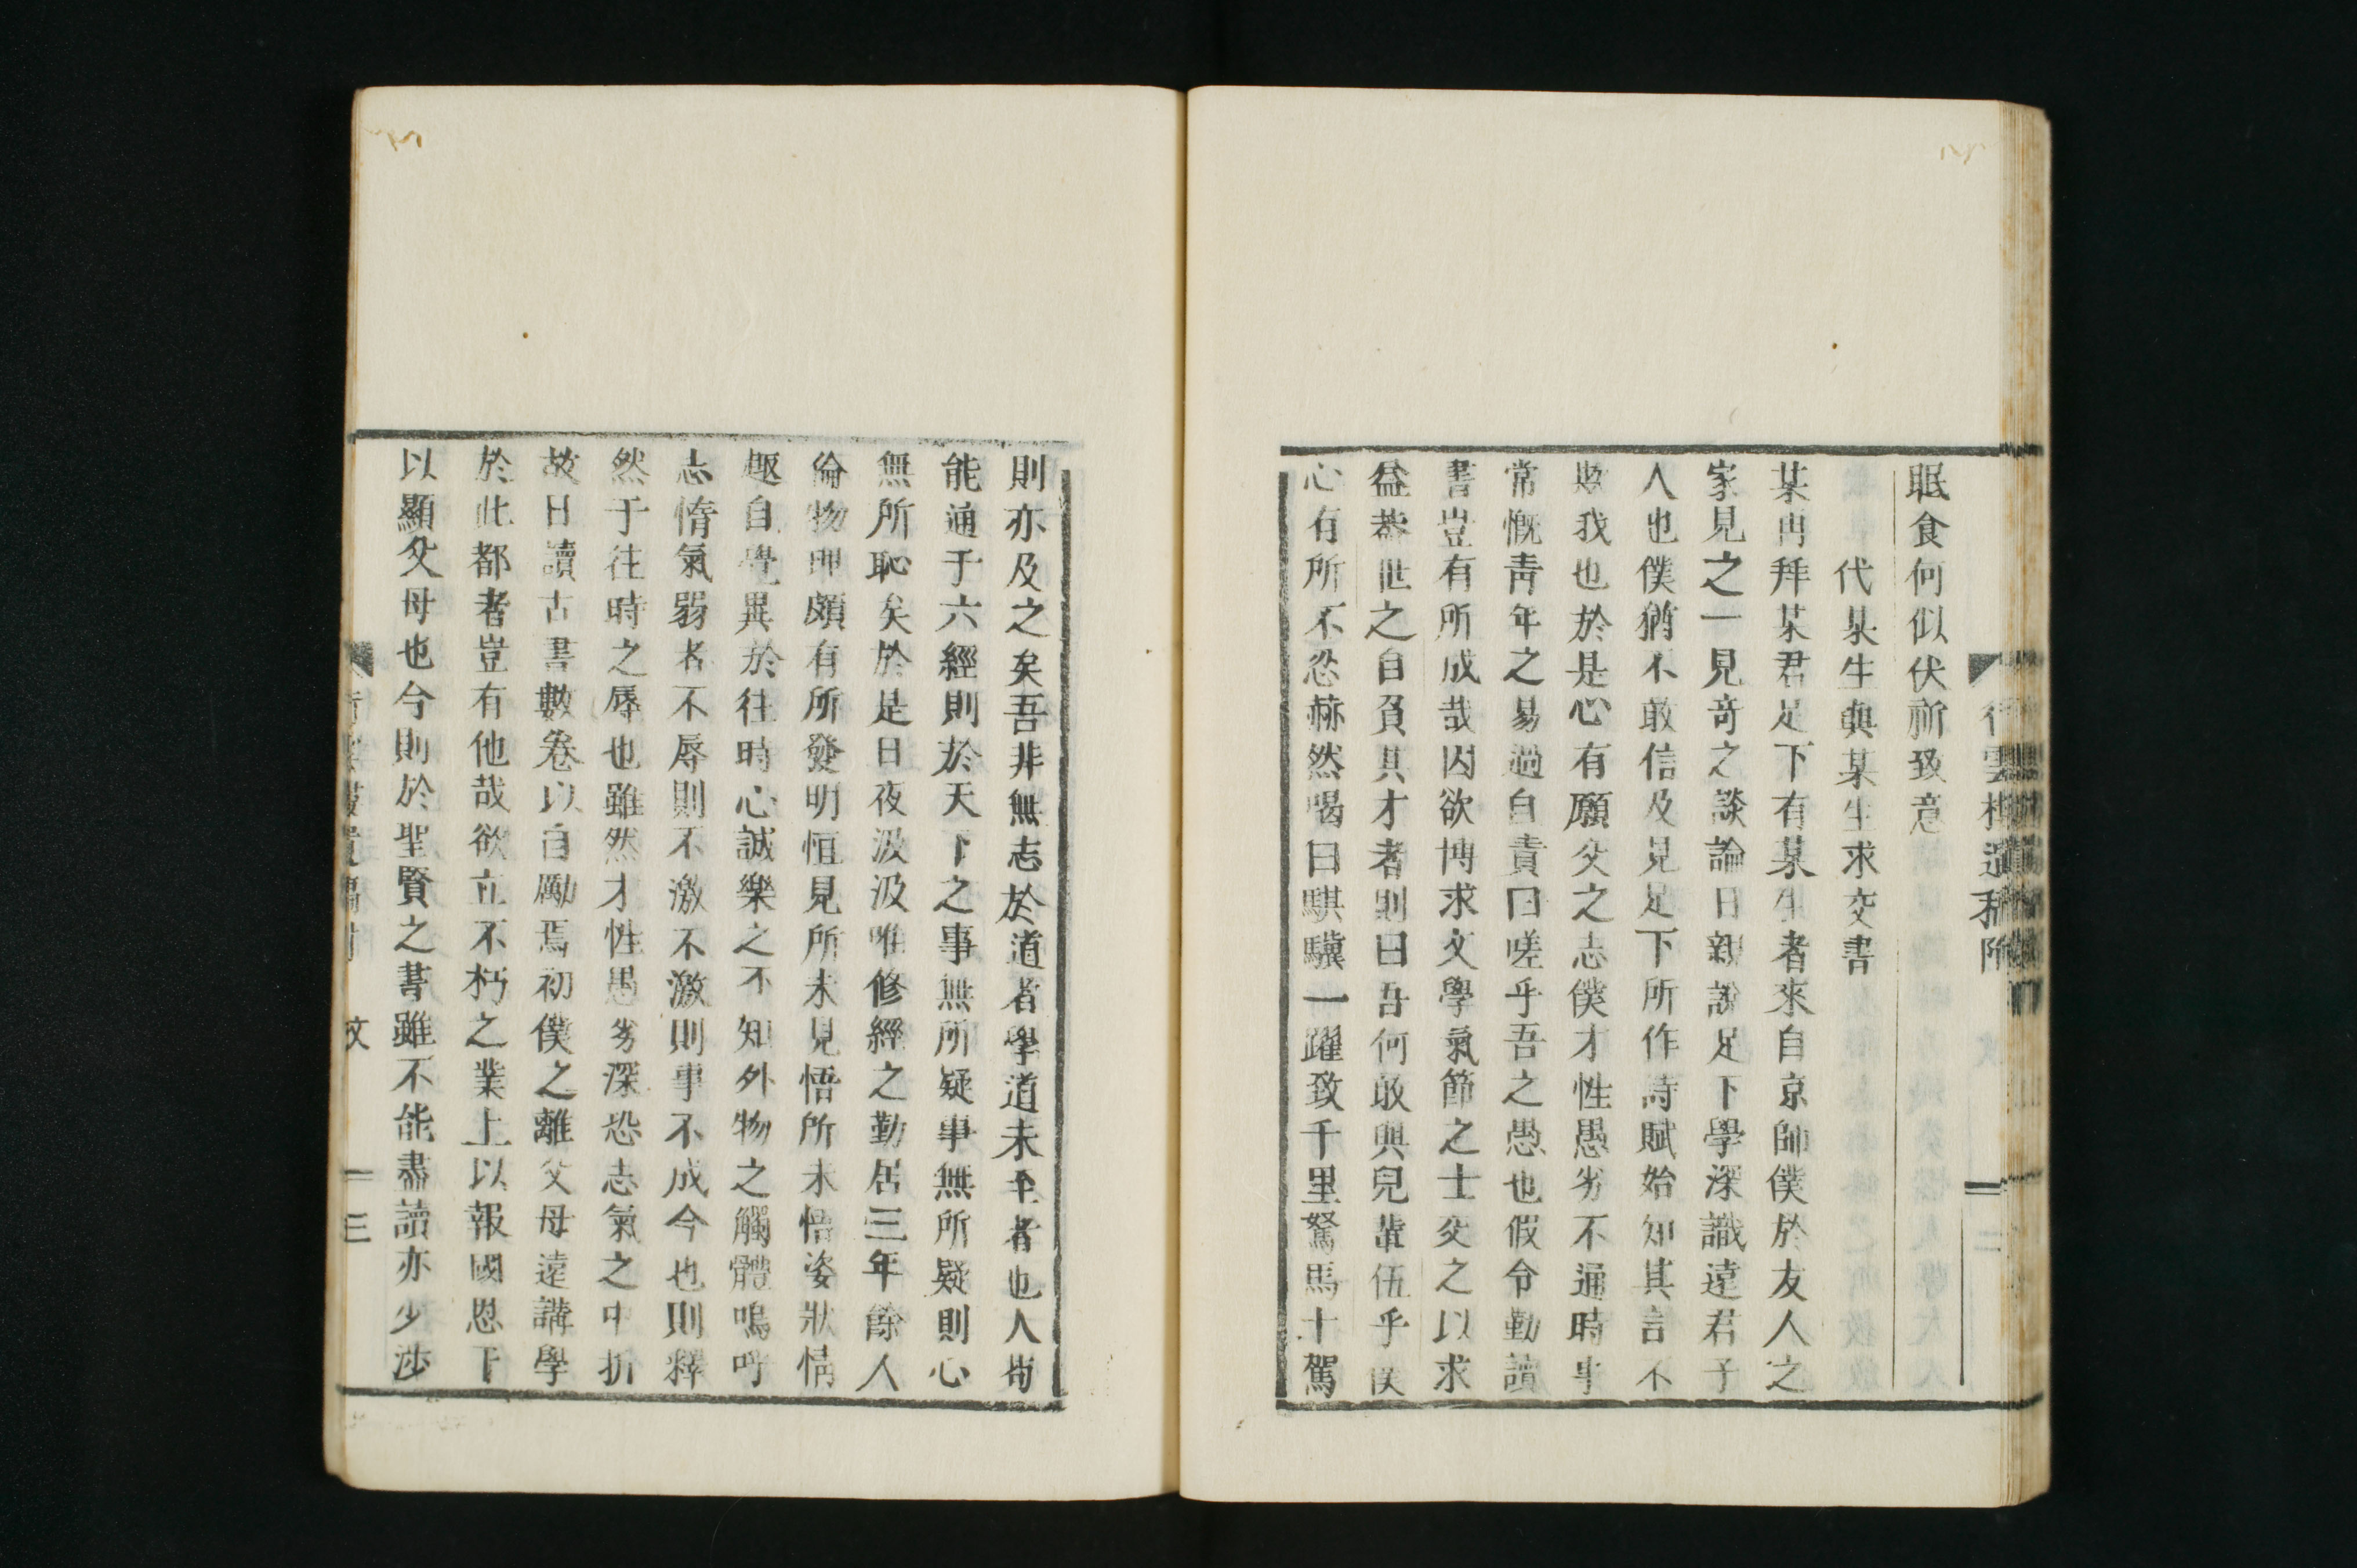 眠食何似伏祈致意
代某生與某生求交書
某再拜某君足下有某生者來自京師僕於友人之
家見之一見奇之談論日親說足下學深識遠君子
人也僕猶不敢信及見足下所作詩賦始知其言不
欺我也於是心有願交之志僕才性愚劣不通時事
常慨靑年之易過自責曰嗟乎吾之愚也假令勤讀
書豈有所成哉因欲博求文學氣節之士交之以求
益蓋世之自負其才者則曰吾何敢與兒輩伍乎僕
心有所不忿赫然喝曰騏驥一躍致千里駑馬十駕
則亦及之矣吾非無志於道者學道未至者也人苟
能通于六經則於天下之事無所疑事無所疑則心
無所恥矣於是日夜汲汲唯修經之勤居三年餘人
倫物理頗有所發明恒見所未見悟所未悟姿狀情
趣自覺異於往時心誠樂之不知外物之觸體嗚呼
志惰氣弱者不辱則不激不激則事不成今也則釋
然于往時之辱也雖然才性愚劣深恐志氣之中折
故日讀古書數卷以自勵焉初僕之離父母遠講學
於此都者豈有他哉欲立不朽之業上以報國恩下
以顯父母也今則於聖賢之書雖不能盡讀亦少涉
文
三